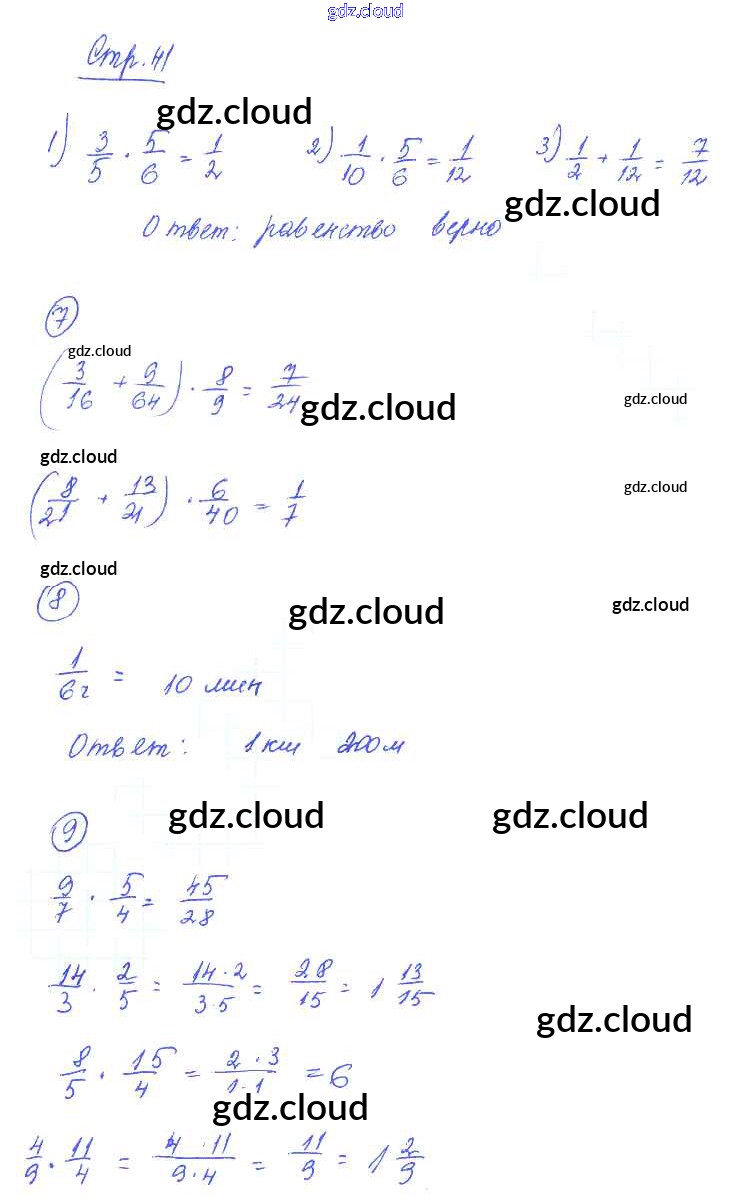 gdz.cloud
Стр. 41
gdz.cloud
1) 3/5 · 5/6 = 1/2 2) 1/10 · 5/6 = 1/12 3) 1/2 + 1/12 = 7/12
gdz.cloud
Ответ: равенство верно
7
gdz.cloud
(3/16 + 9/64) · 8/9 = 7/24
gdz.cloud gdz.cloud
gdz.cloud gdz.cloud
(8/21 + 13/21) · 6/40 = 1/7
gdz.cloud
8 gdz.cloud gdz.cloud
1/6ч = 10 мин
Ответ: 1 км 200 м
9 gdz.cloud gdz.cloud
9/7 · 5/4 = 45/28
14/3 · 2/5 = 14·2/3·5 = 28/15 = 1 13/15
gdz.cloud
8/5 · 15/4 = 2·3/1·1 = 6
gdz.cloud
4/9 · 11/4 = 4·11/9·4 = 11/9 = 1 2/9